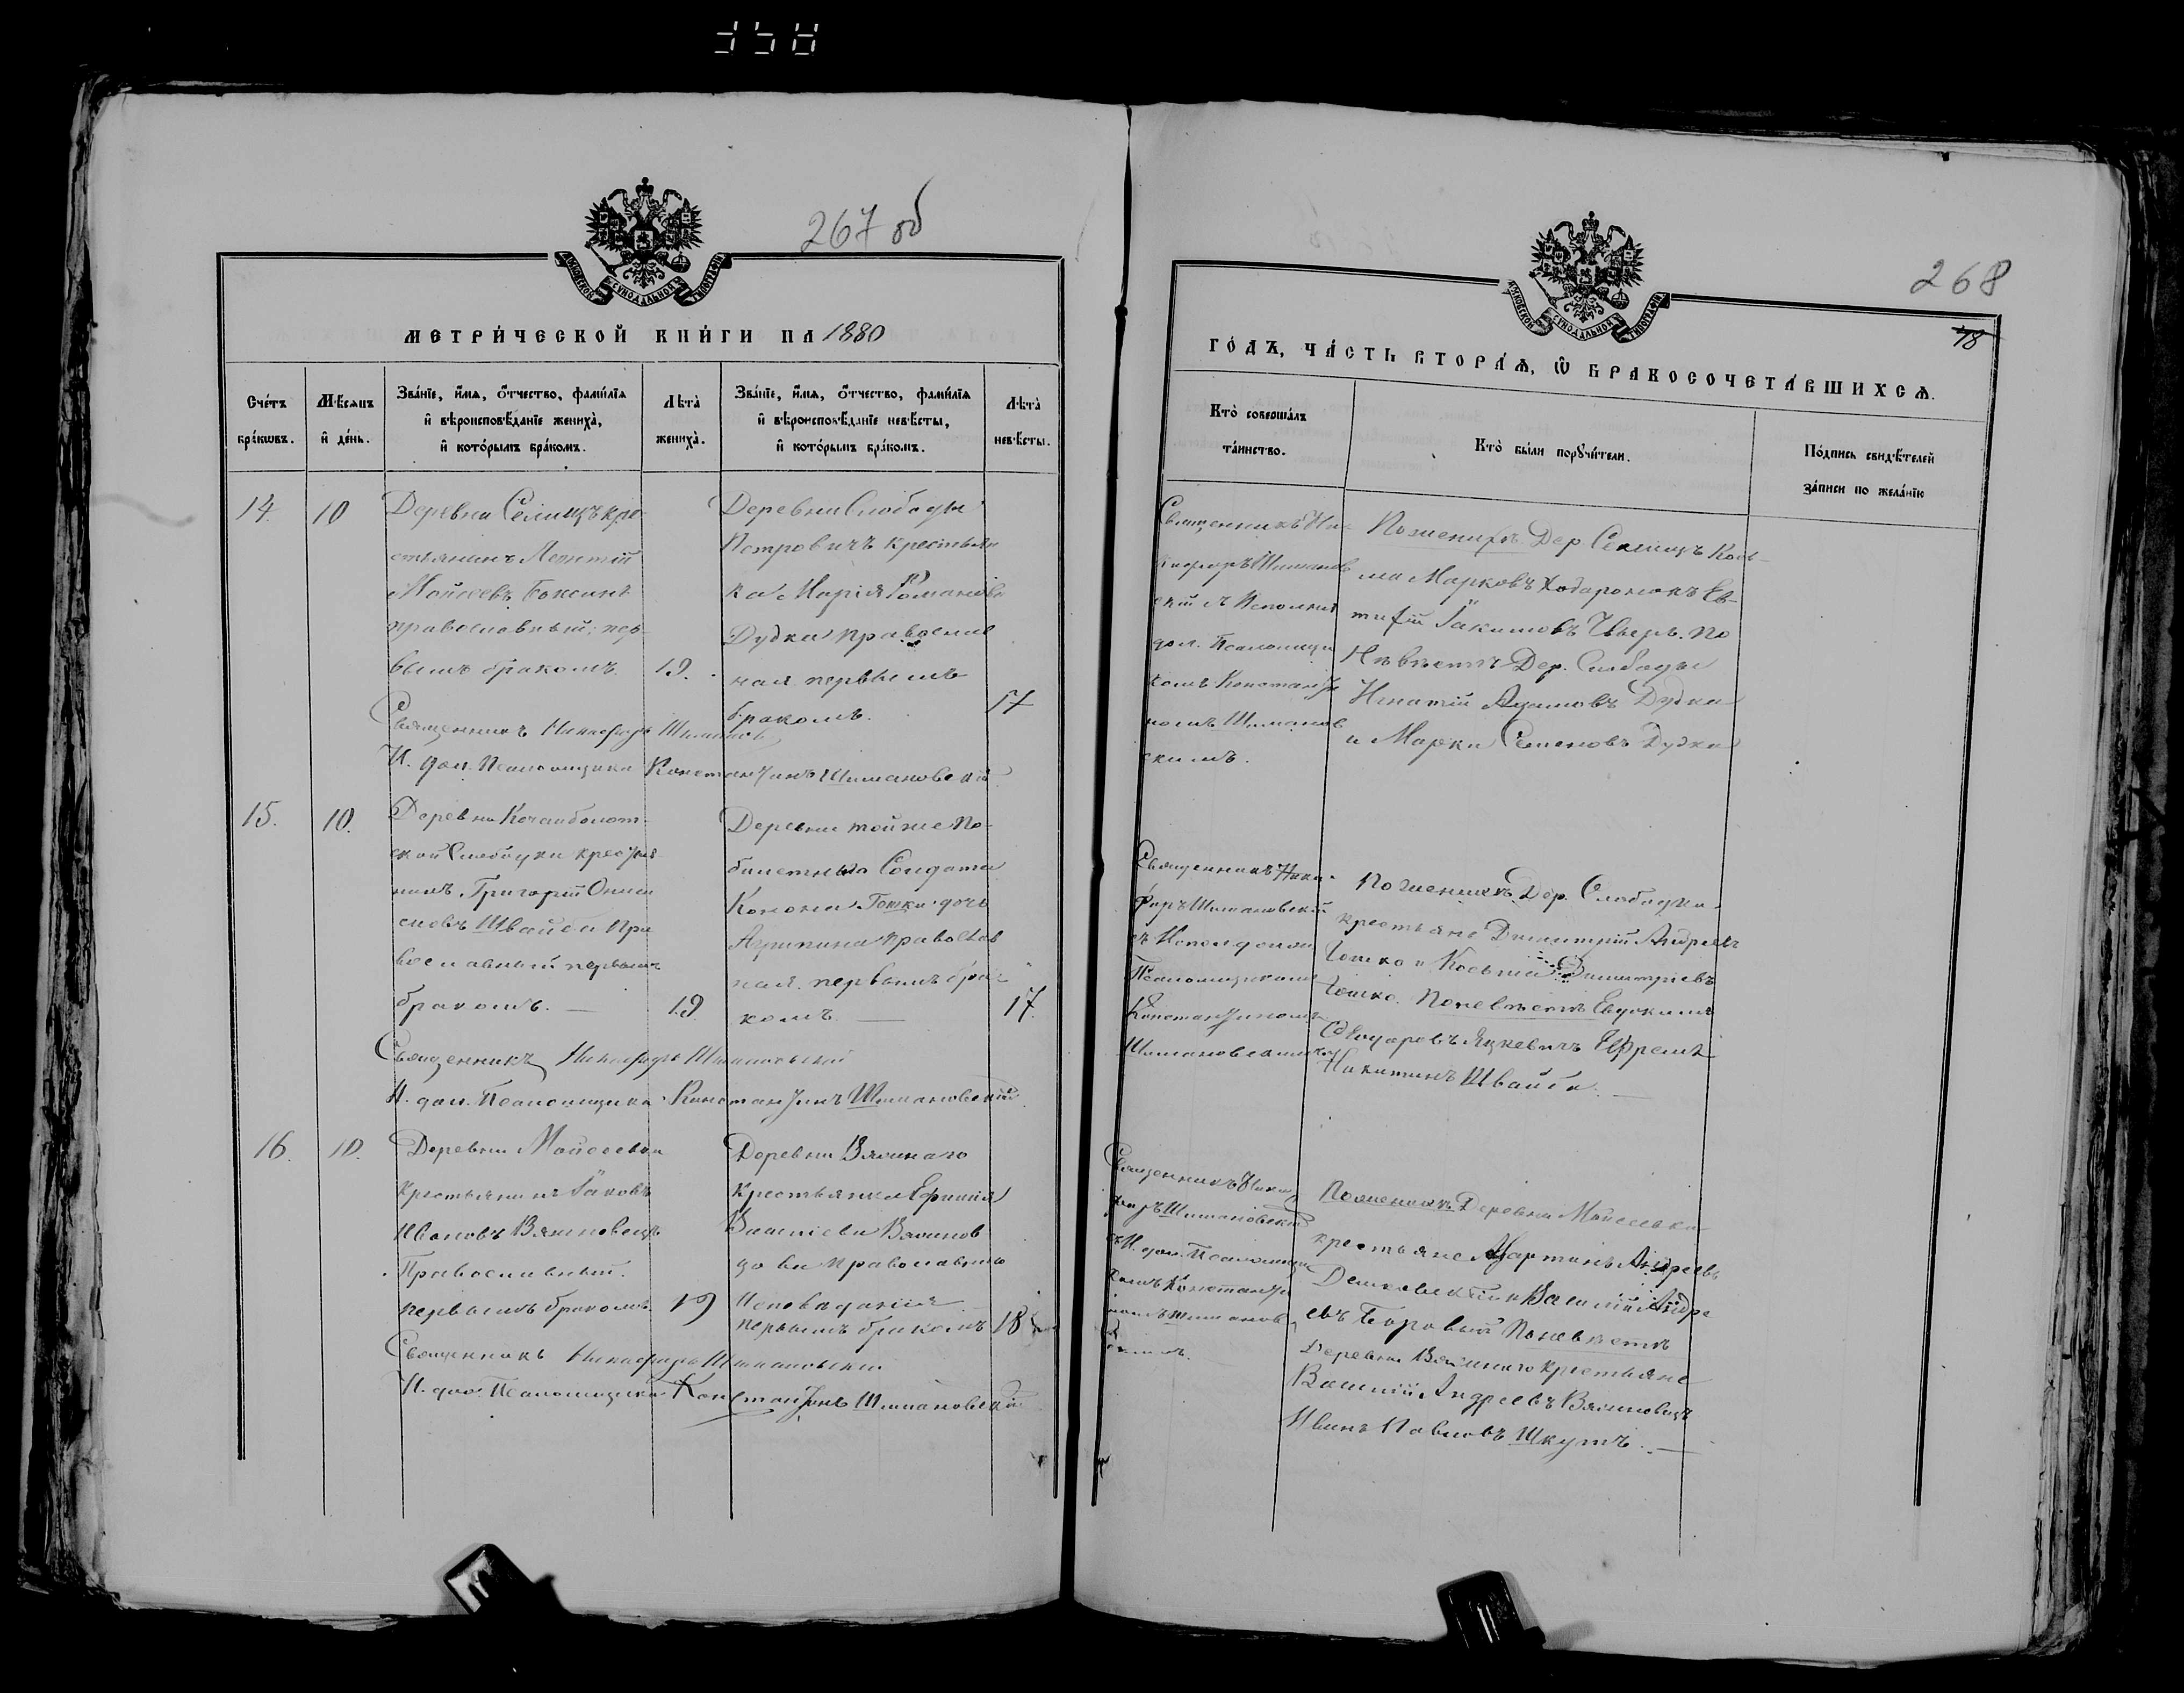 267 об
МЕТРИ́ЧЕСКОЙ КНИ́ГИ НА 1880
Сче́тъ бра́ковъ.
Мѣсяцъ и҆ де́нь.
Зва́нїе, и҆́мѧ, ѻ҆́тчество, фами́лїѧ и҆ вѣроисповѣ́данїе жениха̀, и҆ кото́рымъ бра́комъ.
Лѣта̀ жениха̀.
Зва́нїе, и҆́мѧ, ѻ҆́тчество, фами́лїѧ и҆ вѣроисповѣ́данїе невѣ́сты, и҆ кото́рымъ бра́комъ.
Лѣта̀ невѣ́сты.
14.
10
Деревни Селищъ кре-
стьянинъ Леонтій
Мойсеевъ
православный; пер-
вымъ бракомъ.
19.
Деревни Слободы
Петровичъ крестьян
ка Марія Романова
Дудка православ
ная первымъ
бракомъ.
17
Священникъ Никифоръ Шиманов
И. дол. Псаломщика Константинъ Шимановскій
15.
10.
Деревни
ской Слободки крестья
нинъ Григорій Они
симовъ Швайба пра
вославный первымъ
бракомъ.
19.
Деревни тойже По-
билетнаго Солдата
Конона дочь
Агрипина православ
ная первымъ бра-
комъ
17.
Священникъ Никифоръ Шимановскій
И. дол. Псаломщика Константинъ Шимановскій
16.
10.
Деревни Мойсеевки
Крестьянинъ Іаковъ
Ивановъ
Православный.
первымъ бракомъ
19
Деревни
крестьянка Ефимія
Православнаго
Исповѣданія
первымъ бракомъ
18
Священникъ Никифоръ Шимановскій
И. дол. Псаломщика Константинъ Шимановскій
268
78
ГО́ДЪ, ЧА́СТЬ ВТОРА́Ѧ, Ѽ БРАКОСОЧЕТА́ВШИХСѦ.
Кто̀ соверша́лъ та́инство.
Кто̀ бы́ли порꙋчи́тели.
По́дпись свидѣ́телей за́писи по жела́нїю
Священникъ Ни-
кифоръ Шиманов
скій с Исполняющ
дол. Псаломщи
комъ Константи
номъ Шиманов
скимъ.
По женихѣ Дер. Селищъ Козь-
ма Марковъ Ев-
тифій Іакимовъ По
Невѣстѣ Дер. Слободы
Игнатій Дудка
и Марко Семеновъ Дудка
Священникъ Ники-
форъ Шимановскій
съ Испол дол
Псаломщикомъ
Константиномъ
Шимановскимъ
По женихѣ Дер. Слободки
крестьяне Димитрій Андреевъ
и Косьма Димитріевъ
По невѣстѣ Евдокимъ
Ефремъ
Никитинъ Швайба.
Священникъ Ники
форъ Шимановскій
съ И. дол. Псаломщи
комъ Константи
номъ Шиманов
скимъ.
По женихѣ Деревни Мойсеевки
крестьяне Мартинъ Андреевъ
и Василій Андре
евъ Боровый По невѣстѣ
Деревни крестьяне
Василій Андреевъ
Иванъ Павловъ Шкутъ.